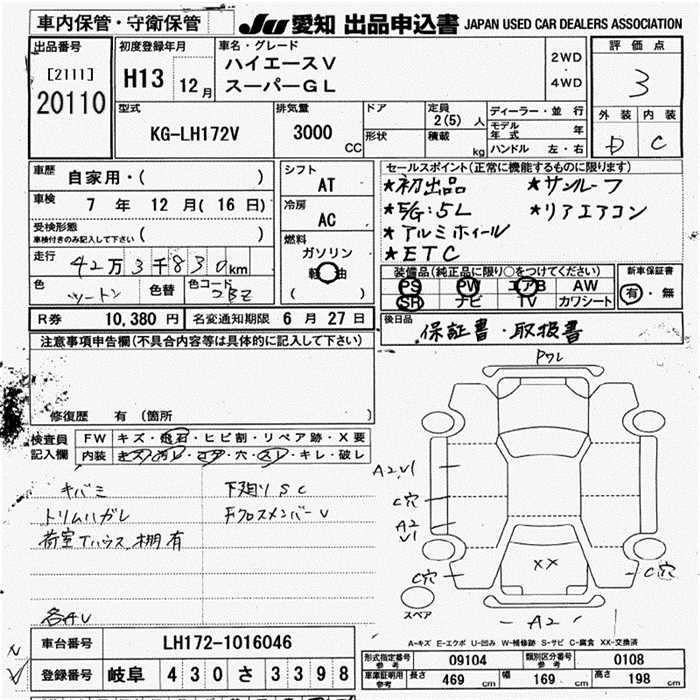 車内保管・守衛保管
JU 愛知 出品申込書 JAPAN USED CAR DEALERS ASSOCIATION
出品番号
[2111]
20110
初度登録年月
H13 12月
車名・グレード
ハイエースV
スーパーGL
2WD
・
4WD
評価点
3
外装 内装
D C
型式
KG-LH172V
排気量
3000 CC
ドア
形状
定員
2(5) 人
積載 kg
ディーラー・並行
モデル年式 年
ハンドル 左・右
車歴 自家用・( )
車検 7 年 12 月( 16 日)
受検形態
車検付きのみ記入して下さい ( )
走行 42万3千830km
色 ツートン 色替 色コード 2BZ
シフト
AT
冷房
AC
燃料
ガソリン
軽油
( )
セールスポイント(正常に機能するものに限ります)
★初出品 ★サンルーフ
★E/G:5L ★リアエアコン
★アルミホイール
★ETC
装備品(純正品に限り○をつけてください)
PS PW エアB AW
SR ナビ TV カワシート
新車保証書
有・無
R券 10,380 円 名変通知期限 6 月 27 日
後日品 保証書・取扱書
注意事項申告欄(不具合内容等は具体的に記入して下さい)
修復歴 有 (箇所
検査員記入欄
FW キズ・飛石・ヒビ割・リペア跡・X要
内装 キズ・汚レ・コゲ・穴・スレ・キレ・破レ
キバミ 下廻りSC
トリムハガレ Fクロスメンバーv
荷室Tハウス、棚有
各AV
ワレ
A2V1
C穴
A2
V1
C穴
XX
C穴
スペア
A2
A-キズ E-エクボ U-凹み W-補修跡 S-サビ C-腐食 XX-交換済
車台番号 LH172-1016046
登録番号 岐阜 430 さ 3398
形式指定番号 参考 09104 類別区分番号 参考 0108
車庫証明用 参考 長さ 469 cm 幅 169 cm 高さ 198 cm